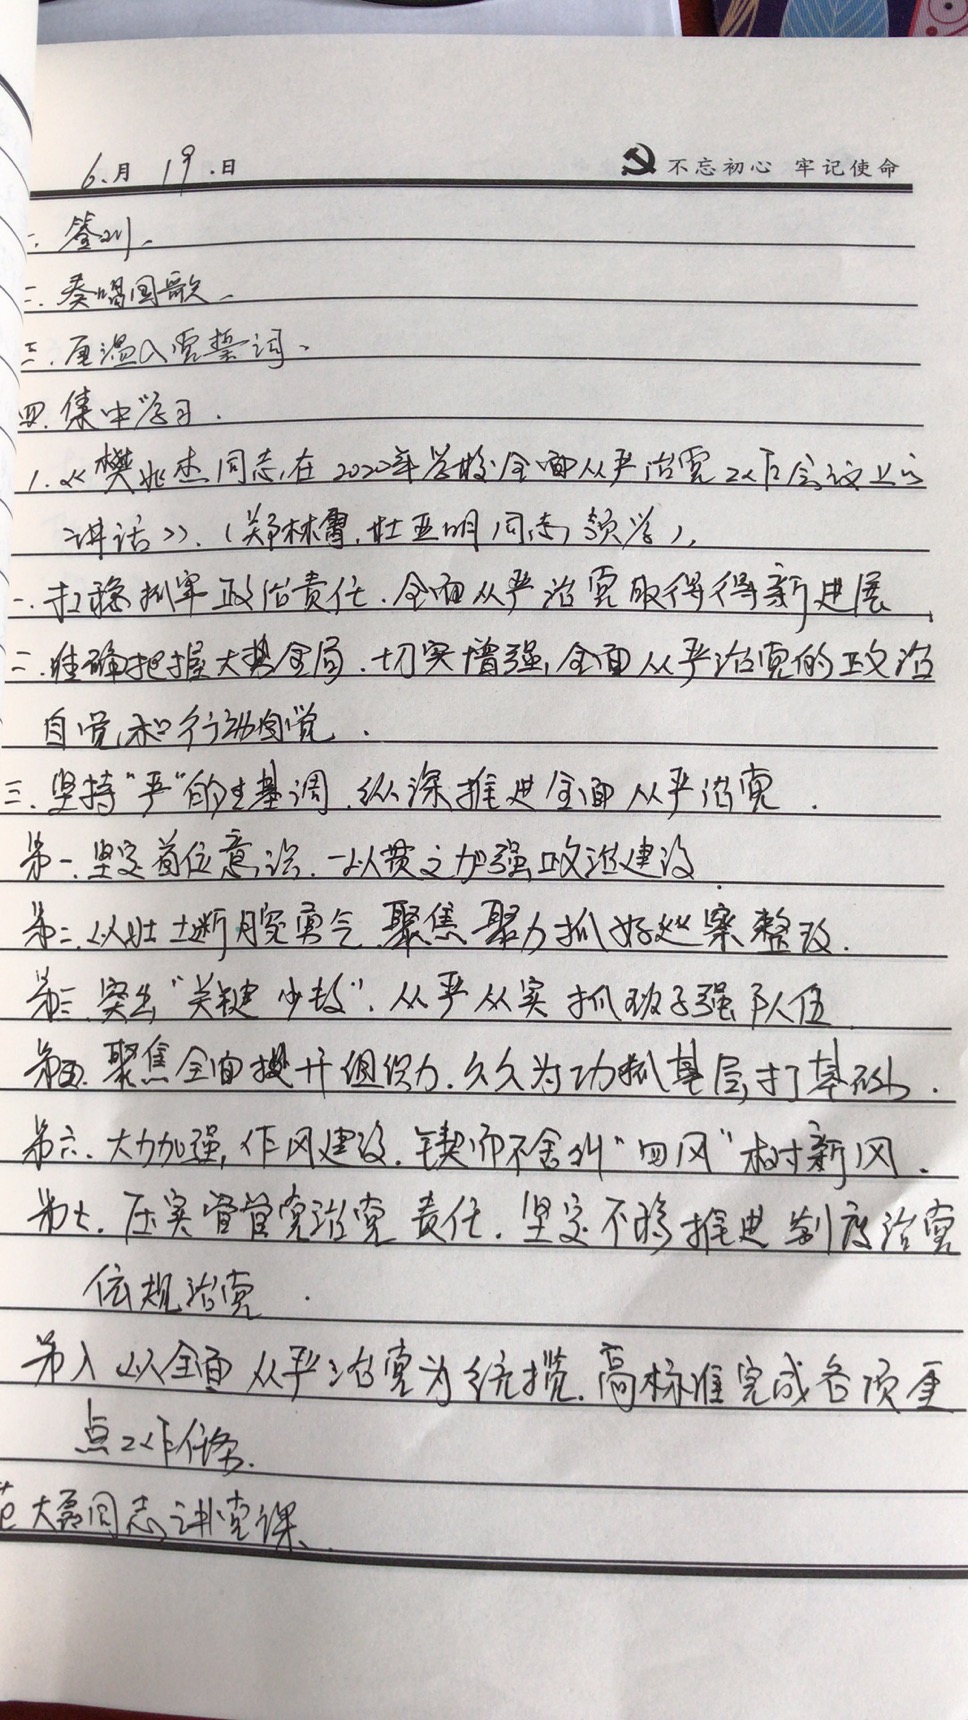 6.月 19.日 不忘初心 牢记使命
一. 签到.
二. 奏唱国歌.
三. 重温入党誓词.
四. 集中学习.
1.《樊兆杰同志在2022年学校全面从严治党工作会议上的
讲话》.(郑林雪,杜亚明同志领学).
一.扛稳抓牢政治责任.全面从严治党取得得新进展.
二.准确把握大势全局.切实增强全面从严治党的政治
自觉和行动自觉.
三.坚持"严"的主基调.纵深推进全面从严治党.
第一.坚定首位意识.一以贯之加强政治建设.
第二.以壮士断腕勇气.聚焦聚力抓好巡案整改.
第三.突出"关键少数".从严从实抓班子强队伍
第五.聚焦全面提升组织力.久久为功抓基层打基础.
第六.大力加强作风建设.锲而不舍纠"四风"树新风.
第七.压实管党治党责任.坚定不移推进制度治党
依规治党.
第八以全面从严治党为统揽.高标准完成各项重
点工作任务.
范大磊同志讲党课.